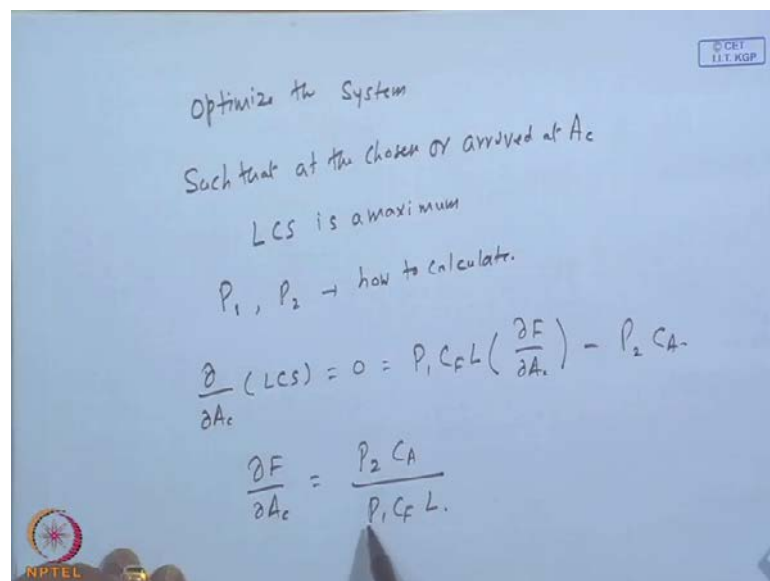 © CET
I.I.T. KGP
Optimize the System
Such that at the chosen or arrived at Ac
LCS is a maximum
P₁, P₂ → how to calculate.
∂/∂Ac (LCS) = 0 = P₁ C_F L (∂F/∂Ac) - P₂ C_A.
∂F/∂Ac = P₂ C_A / P₁ C_F L.
NPTEL